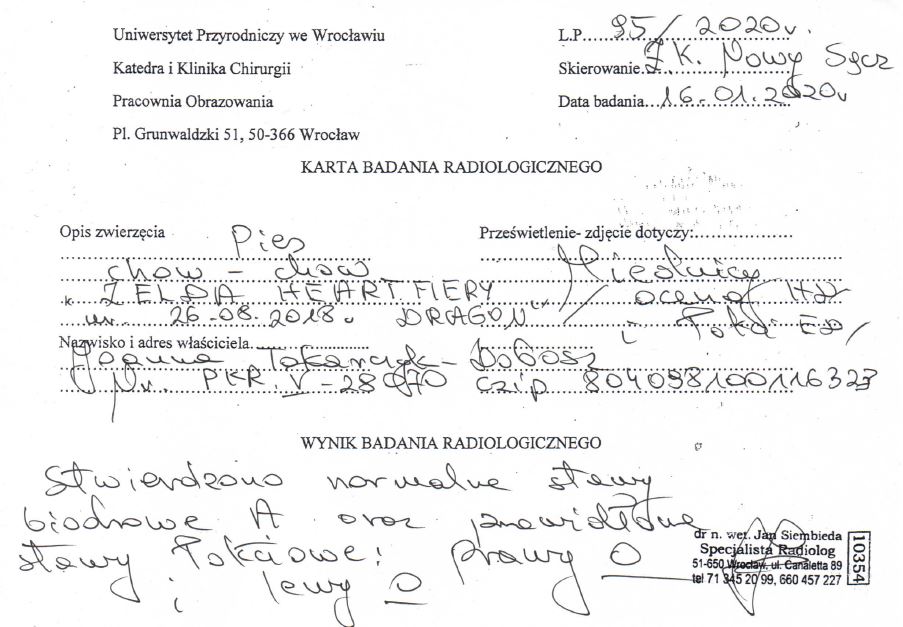 Uniwersytet Przyrodniczy we Wrocławiu
Katedra i Klinika Chirurgii
Pracownia Obrazowania
Pl. Grunwaldzki 51, 50-366 Wrocław
L.P. 95/2020r.
Skierowanie Z.K. Nowy Sącz
Data badania 16-01.2020r
KARTA BADANIA RADIOLOGICZNEGO
Opis zwierzęcia Pies
chow-chow
ZELDA HEART FIERY
ur. 26-08.2018r DRAGON"
Prześwietlenie- zdjęcie dotyczy:
Miednicy
ocena HD
i Łokci ED/
Nazwisko i adres właściciela
Joanna Tokarczyk-Dobosz
Nr. PKR.V-28070 czip 804098100116323
WYNIK BADANIA RADIOLOGICZNEGO
Stwierdzono normalne stawy
biodrowe A oraz prawidłowe
stawy łokciowe: prawy 0
i lewy 0
dr n. wet. Jan Siembieda
Specjalista Radiolog
51-650 Wrocław, ul. Canaletta 89
tel 71 345 20 99, 660 457 227
10354